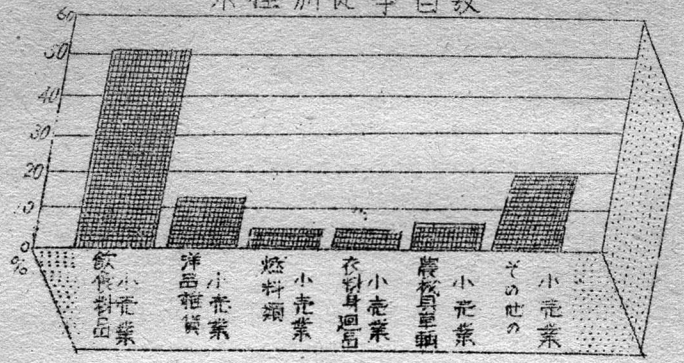 業種別従事者数
60
50
40
30
20
10
0
%
飲食料品
小売業
洋品雑貨
小売業
燃料類
小売業
衣料身廻品
小売業
農機具車輌
小売業
その他の
小売業